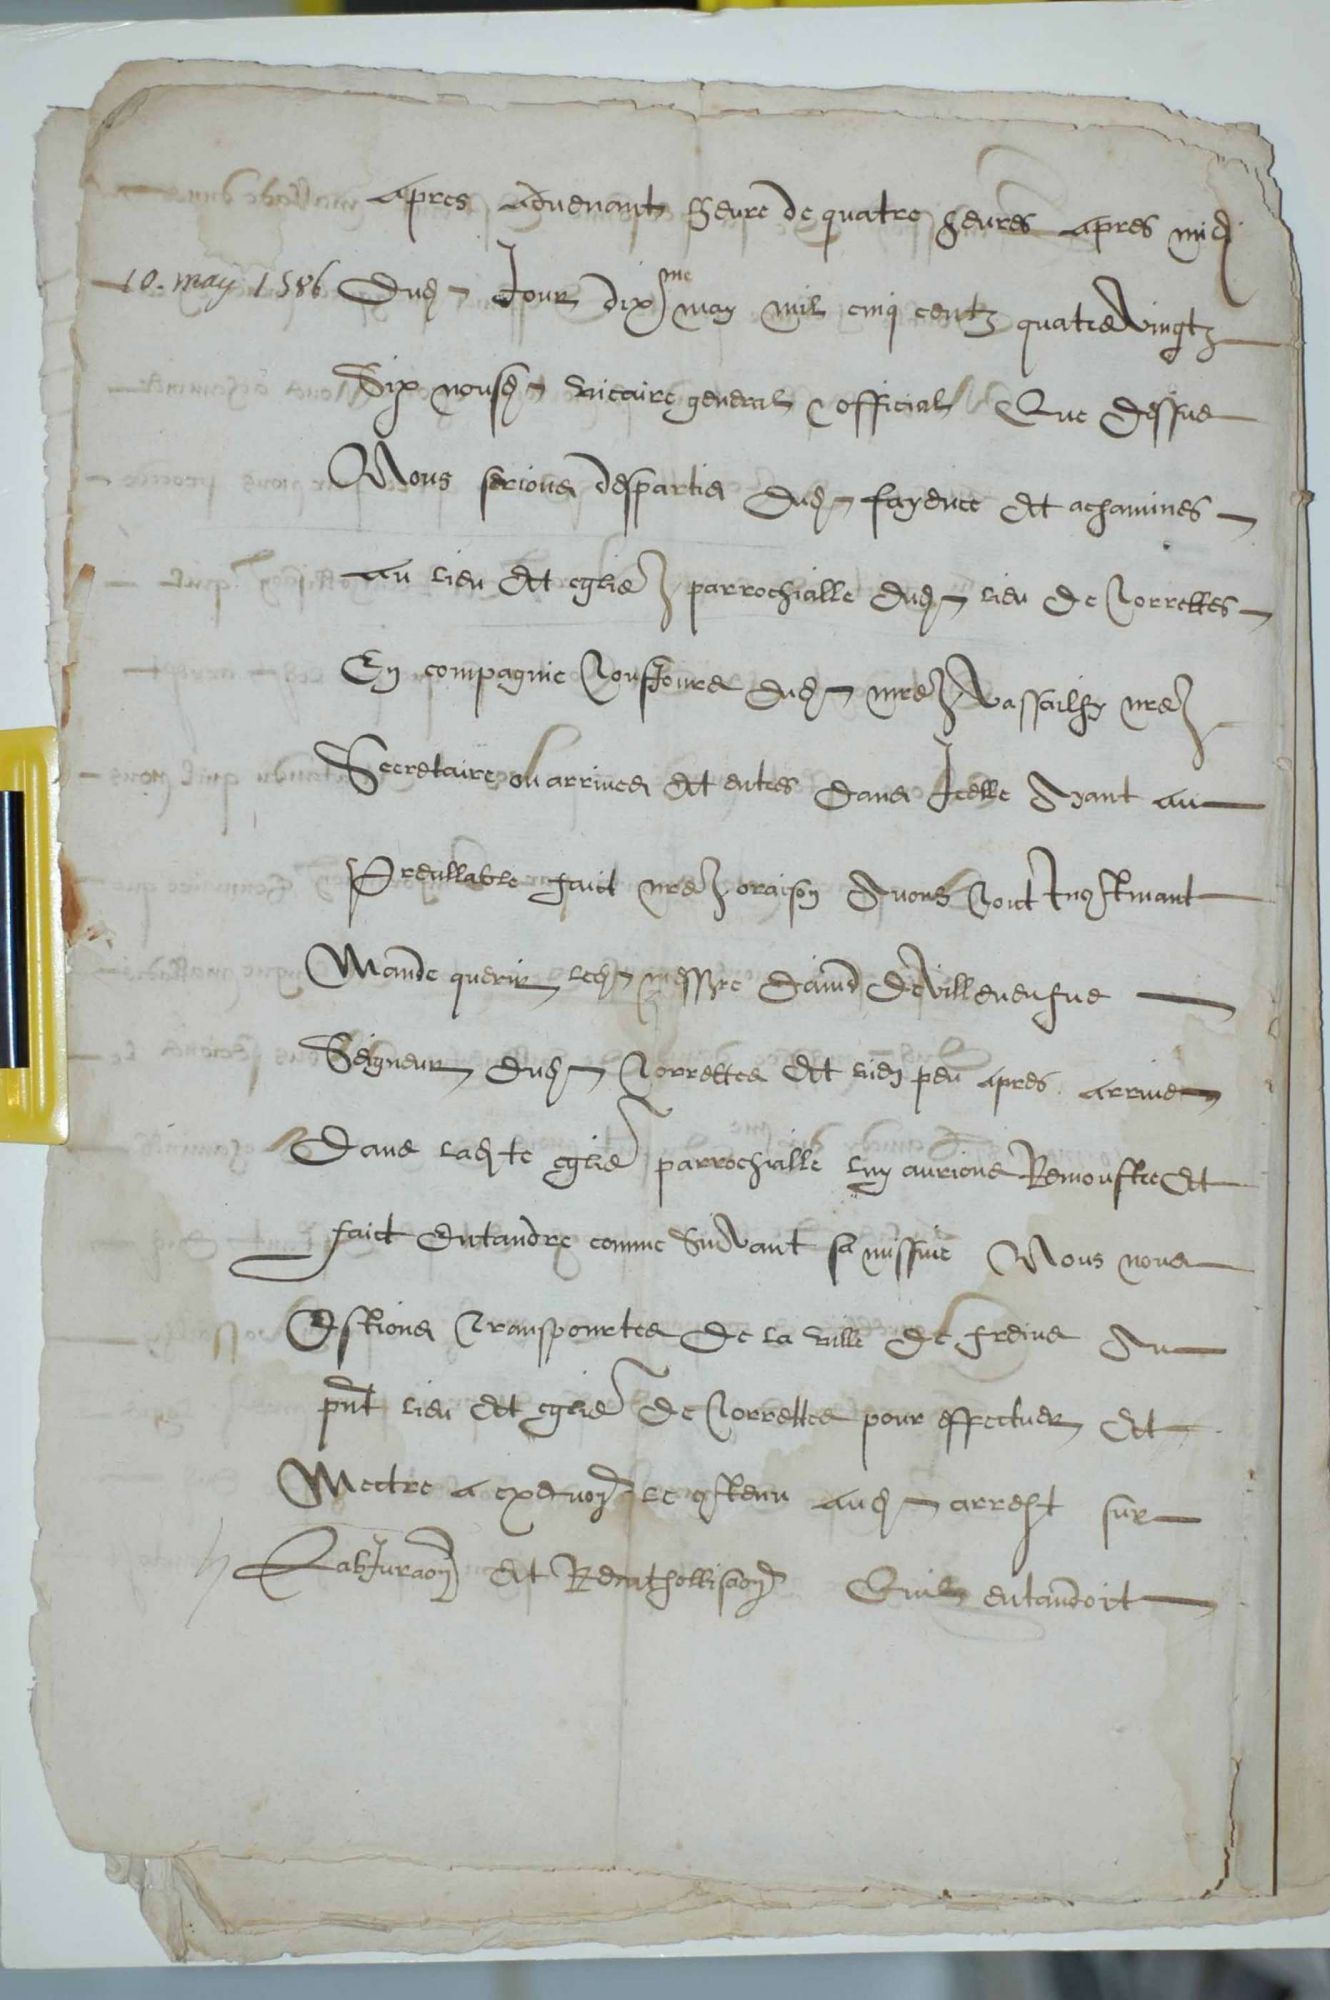 apres advenant heure de quatre heures apres midj
10. may 1586 Dud Jour dix me may mil cinq centz quatre vingtz
Six nousd vicaire general & official Que dessus
Nous serions despartis dud fayence Et achamines
au lieu Et eglise parrochialle dud lieu de Torrettes
En compagnie Tousjours dud mre Vassailhy nre
Secretaire ou arrives Et entres dans Icelle Ayant au
Preallable faict nre oraison Avons Tout Inq
Mande querir led messre de Villeneufve
Seigneur dud Torrettes Et bien peu apres arrive
Dans ladte eglise parrochialle luy aurions Remonstre Et
faict Entandre comme Suivant sa missive Nous nous
Estions Transpourtes de la ville de freius Au
pnt lieu Et eglise de Torrettes pour effectuer Et
Mectre a exequon le qtenu aud arrest sur
LabJuraon Et Recathollisaon Quil entandoit